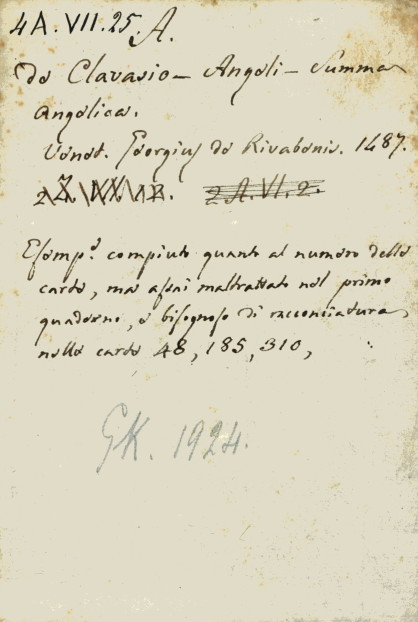 4A.VII.25.A.
De Clavasio – Angeli – Summa
angelica.
Venet. Georgius de Rivabenis. 1487.
2.Z.XX.12. 2.A.VI.2.
Esemp.e compiuto quanto al numero delle
carte, ma assai maltrattato nel primo
quaderno, e bisognoso di racconciatura,
nelle carte 48, 185, 310,
GK. 1924.